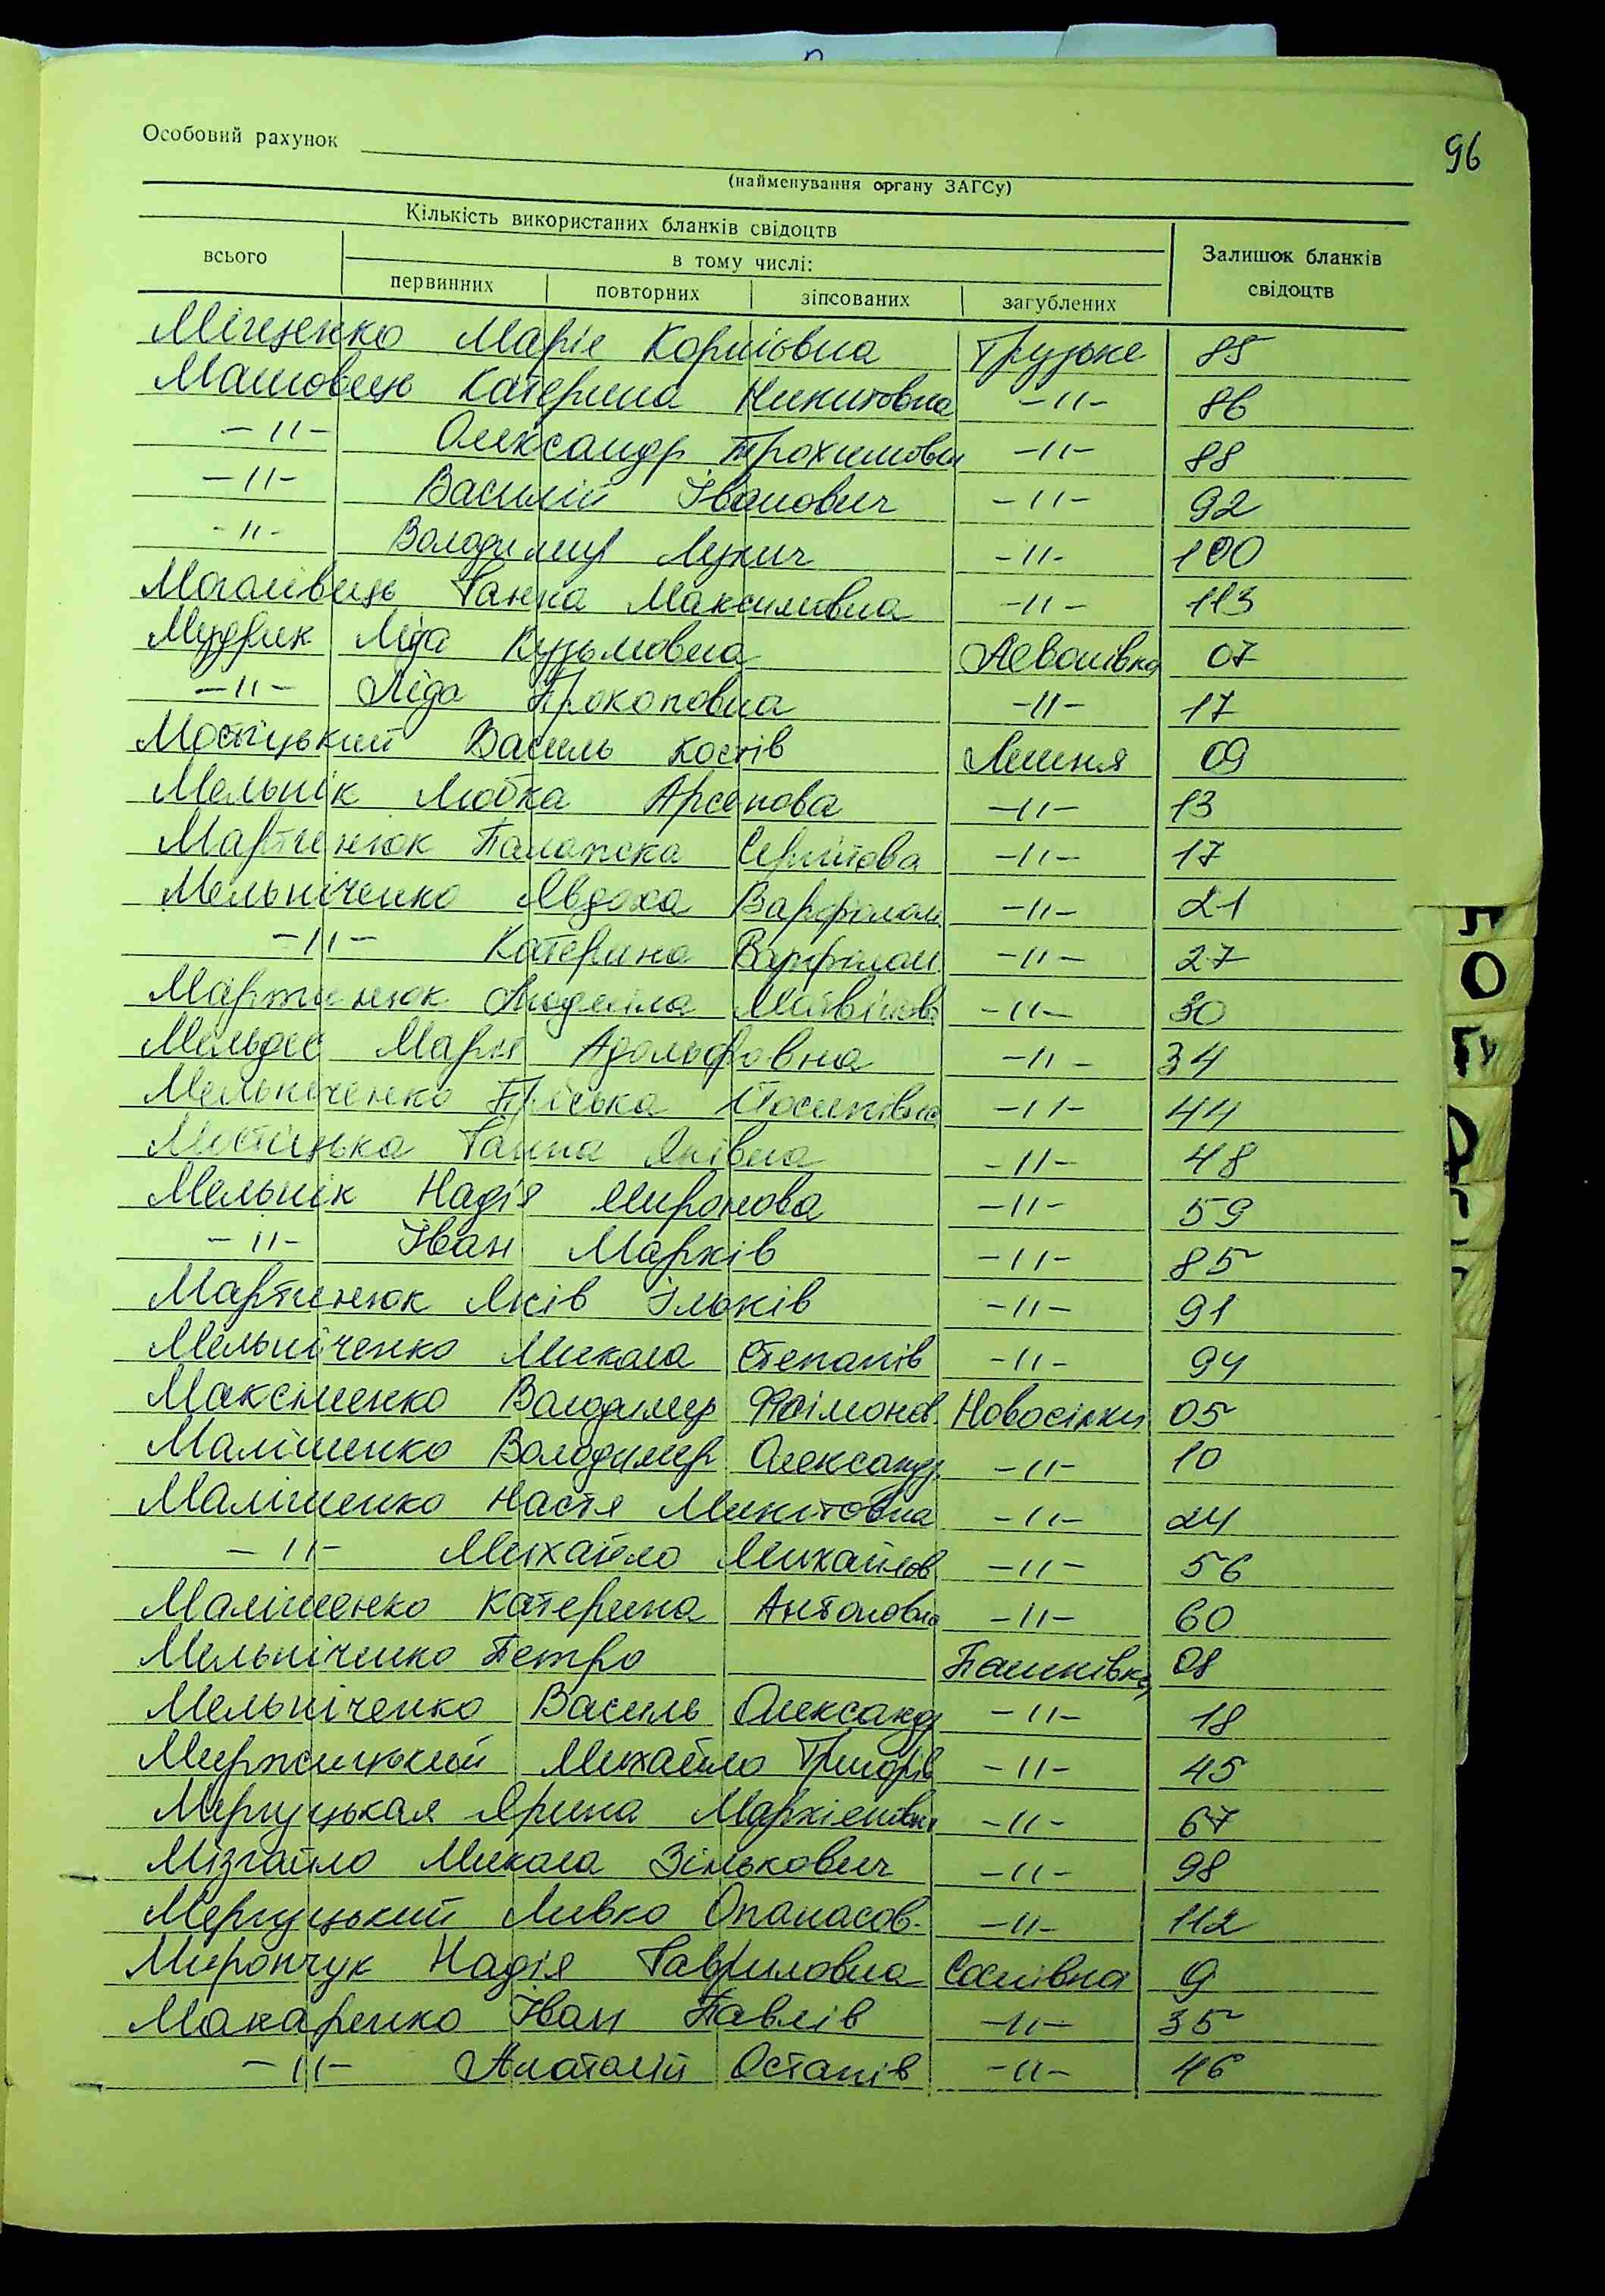 96
Особовий рахунок
(найменування органу ЗАГСу)
Кількість використаних бланків свідоцтв
всього
в тому числі:
первинних повторних зіпсованих загублених
Залишок бланків свідоцтв
Міщенко Маріє Корніьвна Грузьке 85
Машовець Катерина Никитовна -11- 86
-11- Олександр Трохимович -11- 88
-11- Василій Іванович -11- 92
-11- Володимир Лукич -11- 100
Ганна Максимовна -11- 113
Мудрик Ліда Кузьмовна Левонівка 07
-11- Ліда Прокоповна -11- 17
Мостіцький Василь Костів Лишня 09
Мельнік Любка Арсенова -11- 13
Мартинюк Палажка -11- 17
Мельніченко Явдоха Варфолом. -11- 21
-11- Катерина Варфолом. -11- 27
Мартинюк Людміла Матвіїов. -11- 30
Марія Адольфовна -11- 34
Мельніченко Пріська Йосипівна -11- 44
Мостіцька Ганна Яківна -11- 48
Мельнік Надія Миронова -11- 59
-11- Іван Марків -11- 85
Мартинюк Яків Ільків -11- 91
Мельніченко Микола Степанів -11- 94
Максіменко Володимир Новосілки 05
Малішенко Володимир Олександр. -11- 10
Малішенко Настя Микітовна -11- 24
-11- Михайло Михайлов. -11- 56
Малішенко Катерина Антоновна -11- 60
Мельніченко Петро Пашківка 08
Мельніченко Василь Олександр -11- 18
Михайло Григорів -11- 45
Ярина -11- 67
Мізгайло Микола Зінькович -11- 98
Левко Опанасов. -11- 112
Мирончук Надія Гавриловна Соснівка 9
Макаренко Іван Павлів -11- 35
-11- Анатолій Остапів -11- 46